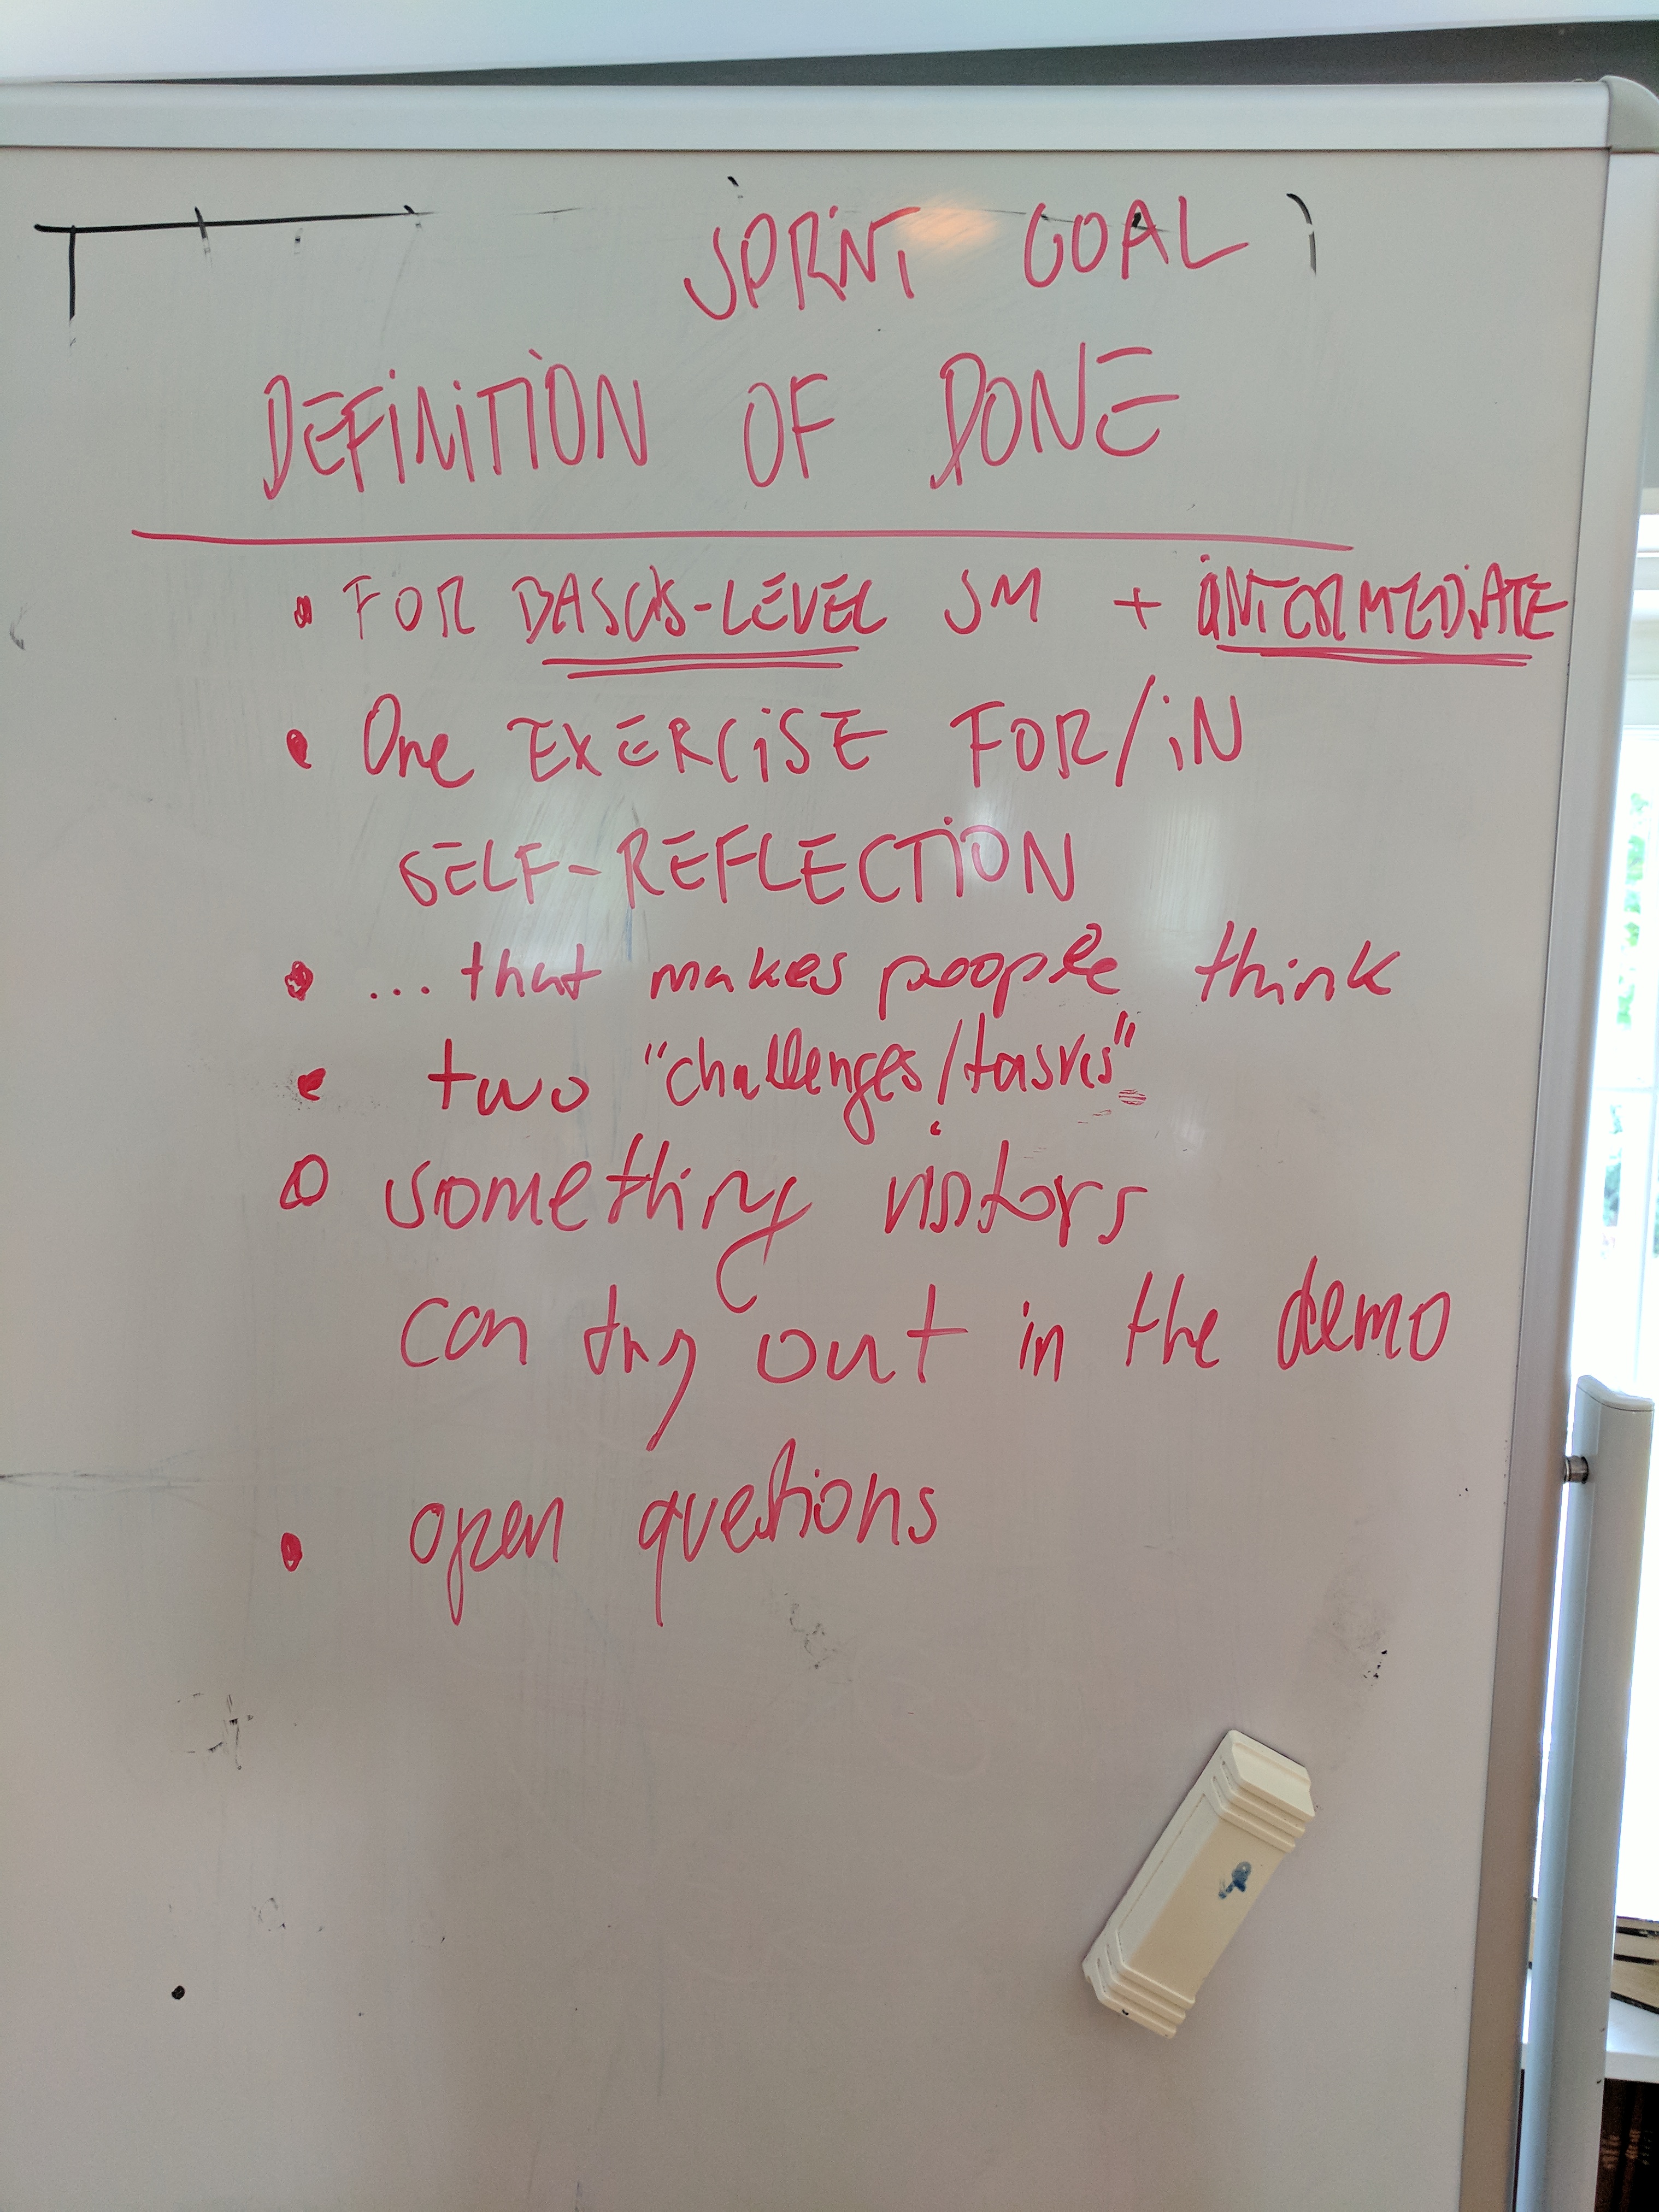 SPRINT GOAL
DEFINITION OF DONE
• FOR BASCIS-LEVEL SM + INTERMEDIATE
• One EXERCISE FOR/IN
SELF-REFLECTION
• ... that makes people think
• two "challenges/tasks"
• something visitors
can try out in the demo
• open questions